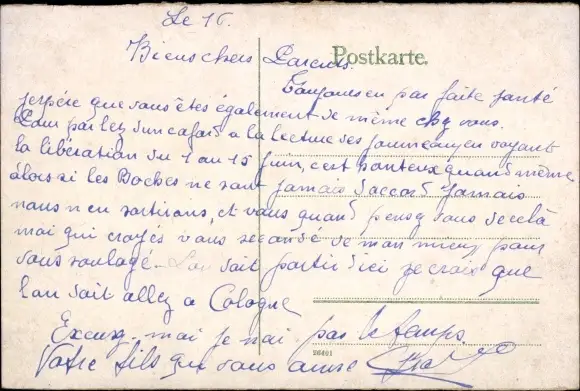 Le 16.
Biens chers Parents.
Postkarte.
Toujours en par faite santé
jespére que vous êtes également de même chez vous.
Pour parlez d'un cafard a la lecture des journeaux en voyant
la libération du 1 au 15 Juin, c'est honteux quand même
alors si les Boches ne sont jamais d'accord Jamais
nous n'en sortirons, et vous quand pensez vous de celà
moi qui croyés vous secondé de mon mieux pour
vous soulagé - L'on doit partir d'ici je crois que
l'on doit allez a Cologne
Excusez-moi je n'ai pas le temps.
Votre fils qui vous aime
26401